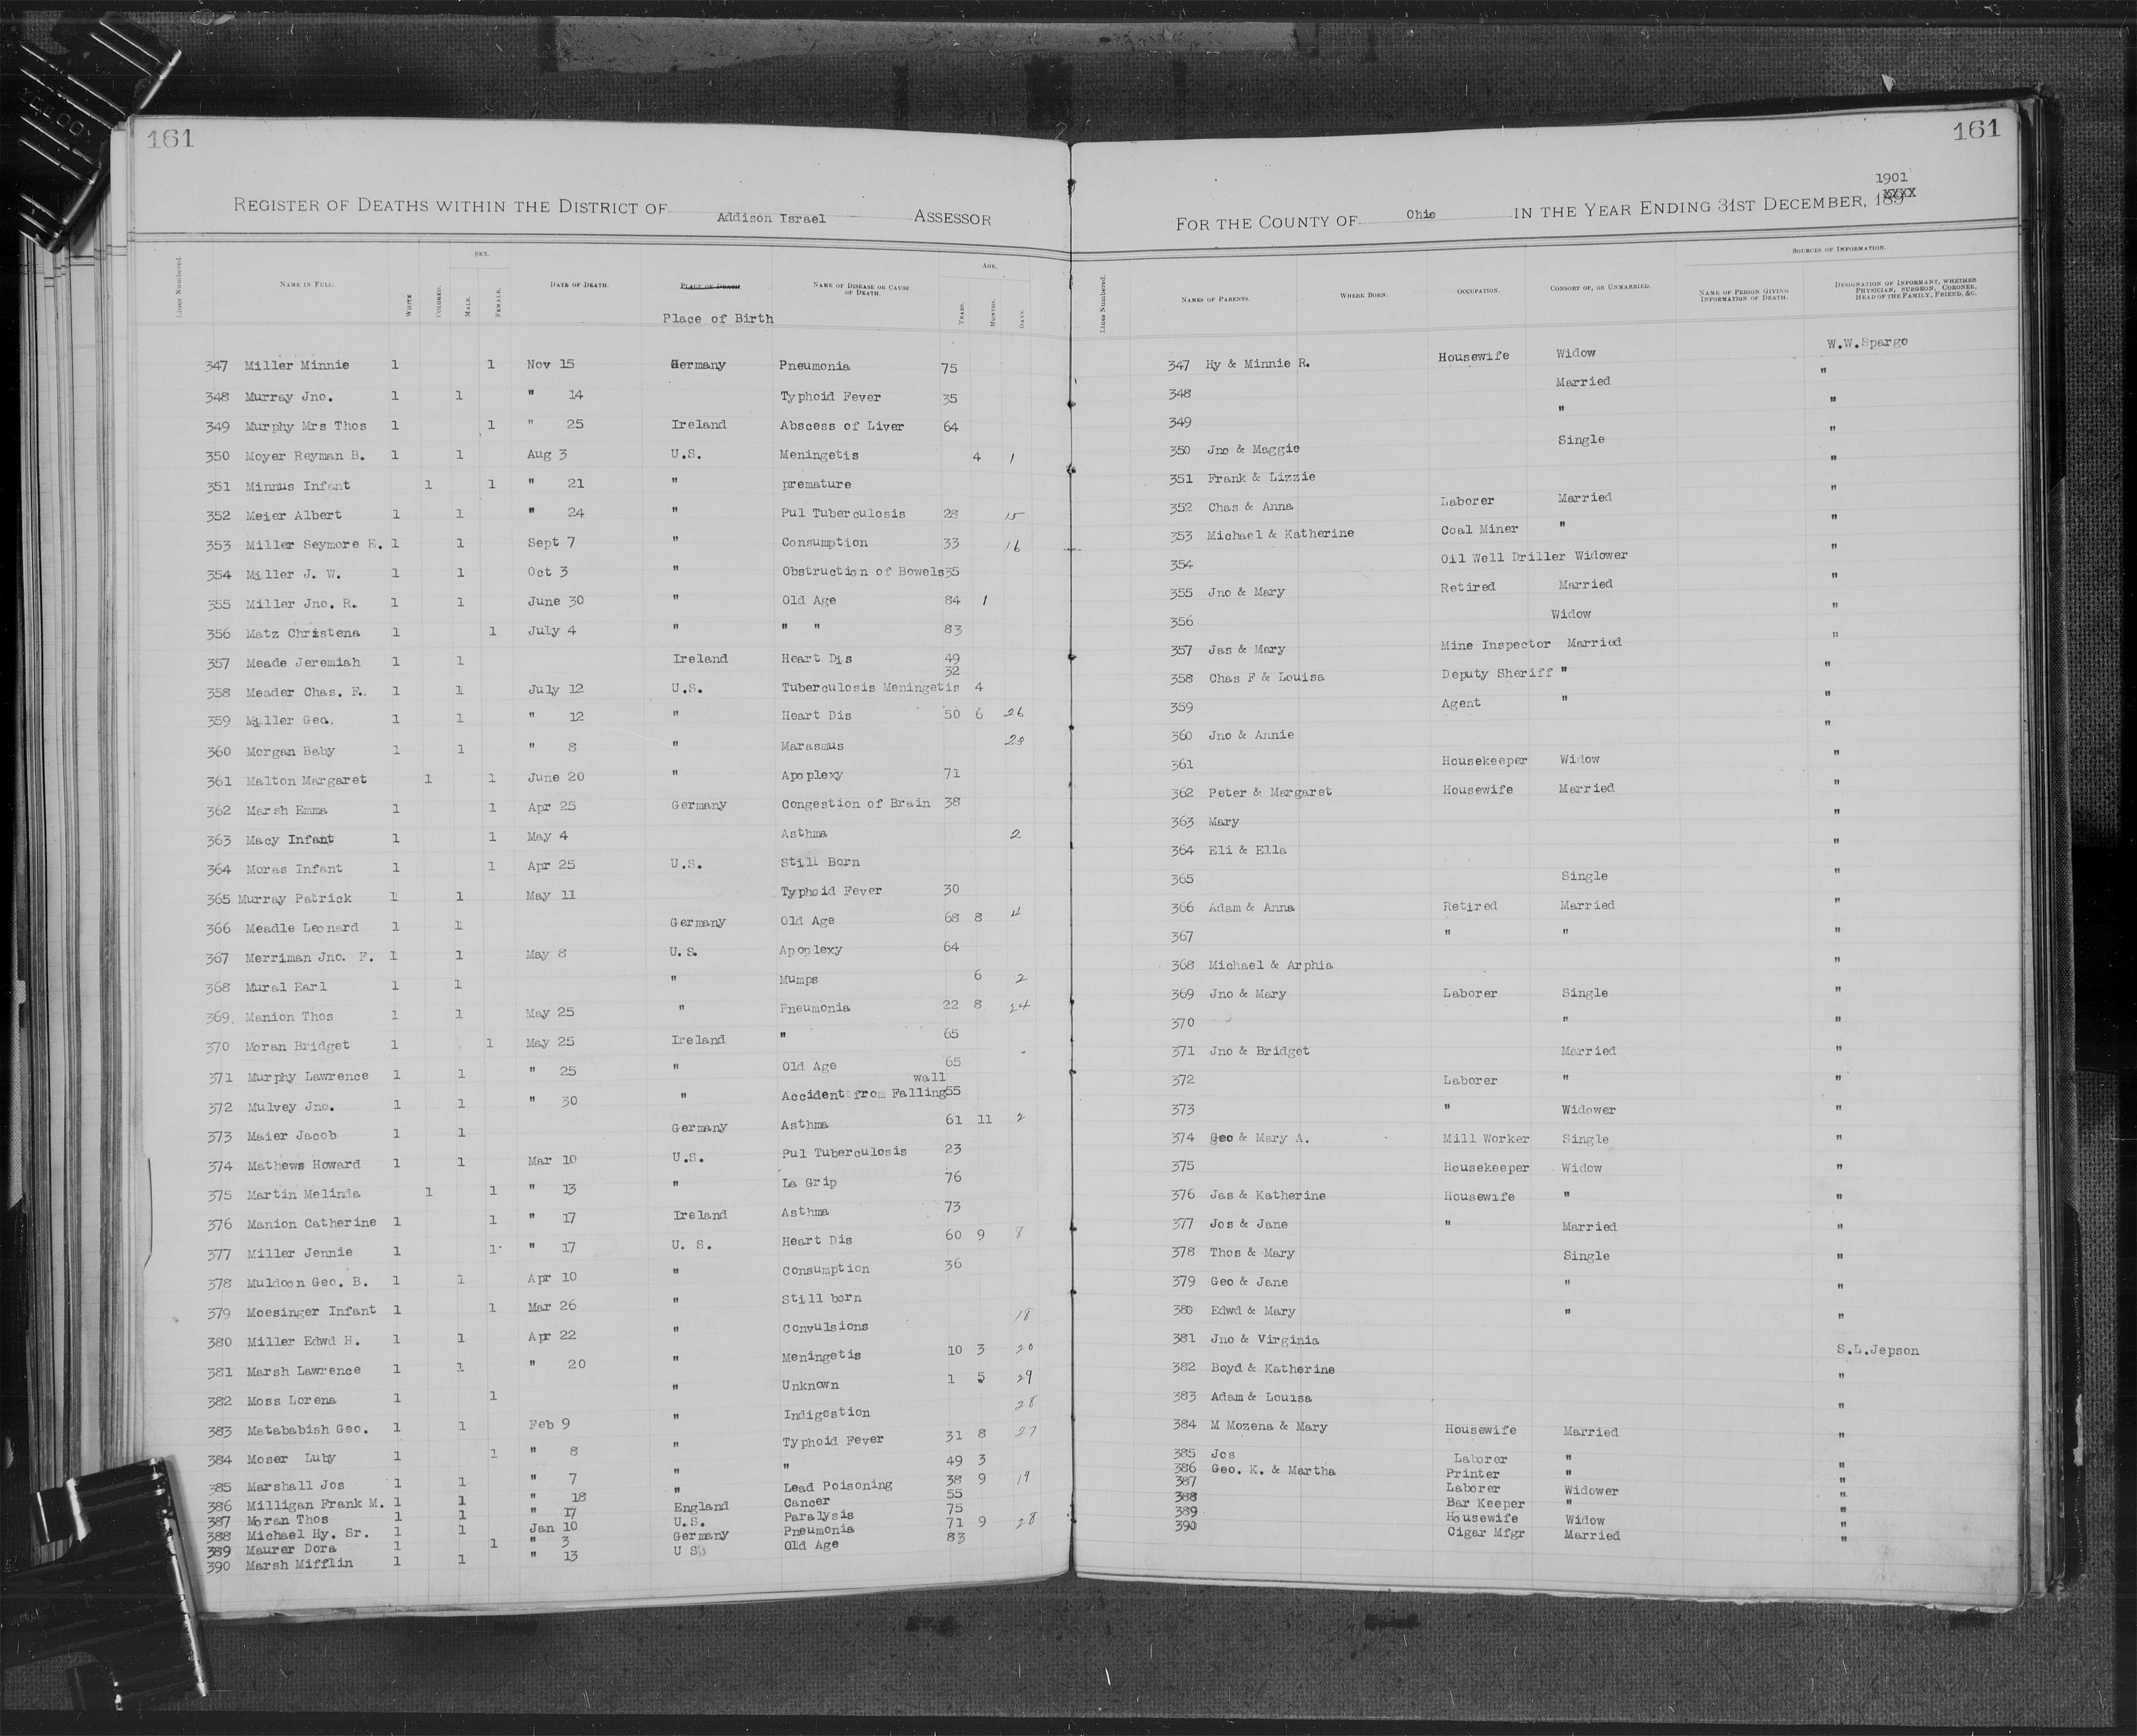 161
REGISTER OF DEATHS WITHIN THE DISTRICT OF Addison Israel ASSESSOR
Lines Numbered. NAME IN FULL. WHITE COLORED. SEX. MALE. FEMALE. DATE OF DEATH. PLACE OF DEATH. Place of Birth NAME OF DISEASE OR CAUSE OF DEATH. AGE. YEARS. MONTHS. DAYS.
347 Miller Minnie 1 1 Nov 15 Germany Pneumonia 75
348 Murray Jno. 1 1 " 14 Typhoid Fever 35
349 Murphy Mrs Thos 1 1 " 25 Ireland Abscess of Liver 64
350 Moyer Reyman B. 1 1 Aug 3 U.S. Meningetis 4 1
351 Minnus Infant 1 1 " 21 " premature
352 Meier Albert 1 1 " 24 " Pul Tuberculosis 28 15
353 Miller Seymore E. 1 1 Sept 7 " Consumption 33 16
354 Miller J. W. 1 1 Oct 3 " Obstruction of Bowels 35
355 Miller Jno. R. 1 1 June 30 " Old Age 84 1
356 Matz Christena 1 1 July 4 " " " 83
357 Meade Jeremiah 1 1 Ireland Heart Dis 49
358 Meader Chas. F. 1 1 July 12 U.S. Tuberculosis Meningetis 32 4
359 Miller Geo. 1 1 " 12 " Heart Dis 50 6 26
360 Morgan Baby 1 1 " 8 " Marasmus 23
361 Malton Margaret 1 1 June 20 " Apoplexy 71
362 Marsh Emma 1 1 Apr 25 Germany Congestion of Brain 38
363 Macy Infant 1 1 May 4 Asthma 2
364 Moras Infant 1 1 Apr 25 U.S. Still Born
365 Murray Patrick 1 1 May 11 Typhoid Fever 30
366 Meadle Leonard 1 1 Germany Old Age 68 8 4
367 Merriman Jno. F. 1 1 May 8 U.S. Apoplexy 64
368 Mural Earl 1 1 " Mumps 6 2
369. Manion Thos 1 1 May 25 " Pneumonia 22 8 24
370 Moran Bridget 1 1 May 25 Ireland " 65
371 Murphy Lawrence 1 1 " 25 " Old Age 65
372 Mulvey Jno. 1 1 " 30 " Accident from Falling wall 55
373 Maier Jacob 1 1 Germany Asthma 61 11 2
374 Mathews Howard 1 1 Mar 10 U.S. Pul Tuberculosis 23
375 Martin Melinda 1 1 " 13 " La Grip 76
376 Manion Catherine 1 1 " 17 Ireland Asthma 73
377 Miller Jennie 1 1 " 17 U. S. Heart Dis 60 9 8
378 Muldoon Geo. B. 1 1 Apr 10 " Consumption 36
379 Moesinger Infant 1 1 Mar 26 " Still born
380 Miller Edwd H. 1 1 Apr 22 " Convulsions 18
381 Marsh Lawrence 1 1 " 20 " Meningetis 10 3 20
382 Moss Lorena 1 1 " Unknown 1 5 29
383 Matababish Geo. 1 1 Feb 9 " Indigestion 28
384 Moser Luby 1 1 " 8 " Typhoid Fever 31 8 27
385 Marshall Jos 1 1 " 7 " " 49 3
386 Milligan Frank M. 1 1 " 18 " Lead Poisoning 38 9 19
387 Moran Thos 1 1 " 17 England Cancer 55
388 Michael Hy. Sr. 1 1 Jan 10 U.S. Paralysis 75
389 Maurer Dora 1 1 " 3 Germany Pneumonia 71 9 28
390 Marsh Mifflin 1 1 " 13 U S Old Age 83
161
FOR THE COUNTY OF Ohio IN THE YEAR ENDING 31ST DECEMBER, 189XXXX 1901
Lines Numbered. NAMES OF PARENTS. WHERE BORN. OCCUPATION. CONSORT OF, OR UNMARRIED. SOURCES OF INFORMATION. NAME OF PERSON GIVING INFORMATION OF DEATH. DESIGNATION OF INFORMANT, WHETHER PHYSICIAN, SURGEON, CORONER, HEAD OF THE FAMILY, FRIEND, &C.
347 Hy & Minnie R. Housewife Widow W.W.Spargo
348 Married "
349 " "
350 Jno & Maggie Single "
351 Frank & Lizzie "
352 Chas & Anna Laborer Married "
353 Michael & Katherine Coal Miner " "
354 Oil Well Driller Widower "
355 Jno & Mary Retired Married "
356 Widow "
357 Jas & Mary Mine Inspector Married "
358 Chas F & Louisa Deputy Sheriff " "
359 Agent " "
360 Jno & Annie "
361 Housekeeper Widow "
362 Peter & Margaret Housewife Married "
363 Mary "
364 Eli & Ella "
365 Single "
366 Adam & Anna Retired Married "
367 " " "
368 Michael & Arphia "
369 Jno & Mary Laborer Single "
370 " "
371 Jno & Bridget Married "
372 Laborer " "
373 " Widower "
374 Geo & Mary A. Mill Worker Single "
375 Housekeeper Widow "
376 Jas & Katherine Housewife " "
377 Jos & Jane " Married "
378 Thos & Mary Single "
379 Geo & Jane " "
380 Edwd & Mary " "
381 Jno & Virginia S.L.Jepson
382 Boyd & Katherine "
383 Adam & Louisa "
384 M Mozena & Mary Housewife Married "
385 Jos Laborer " "
386 Geo. K. & Martha Printer " "
387 Laborer Widower "
388 Bar Keeper " "
389 Housewife Widow "
390 Cigar Mfgr Married "